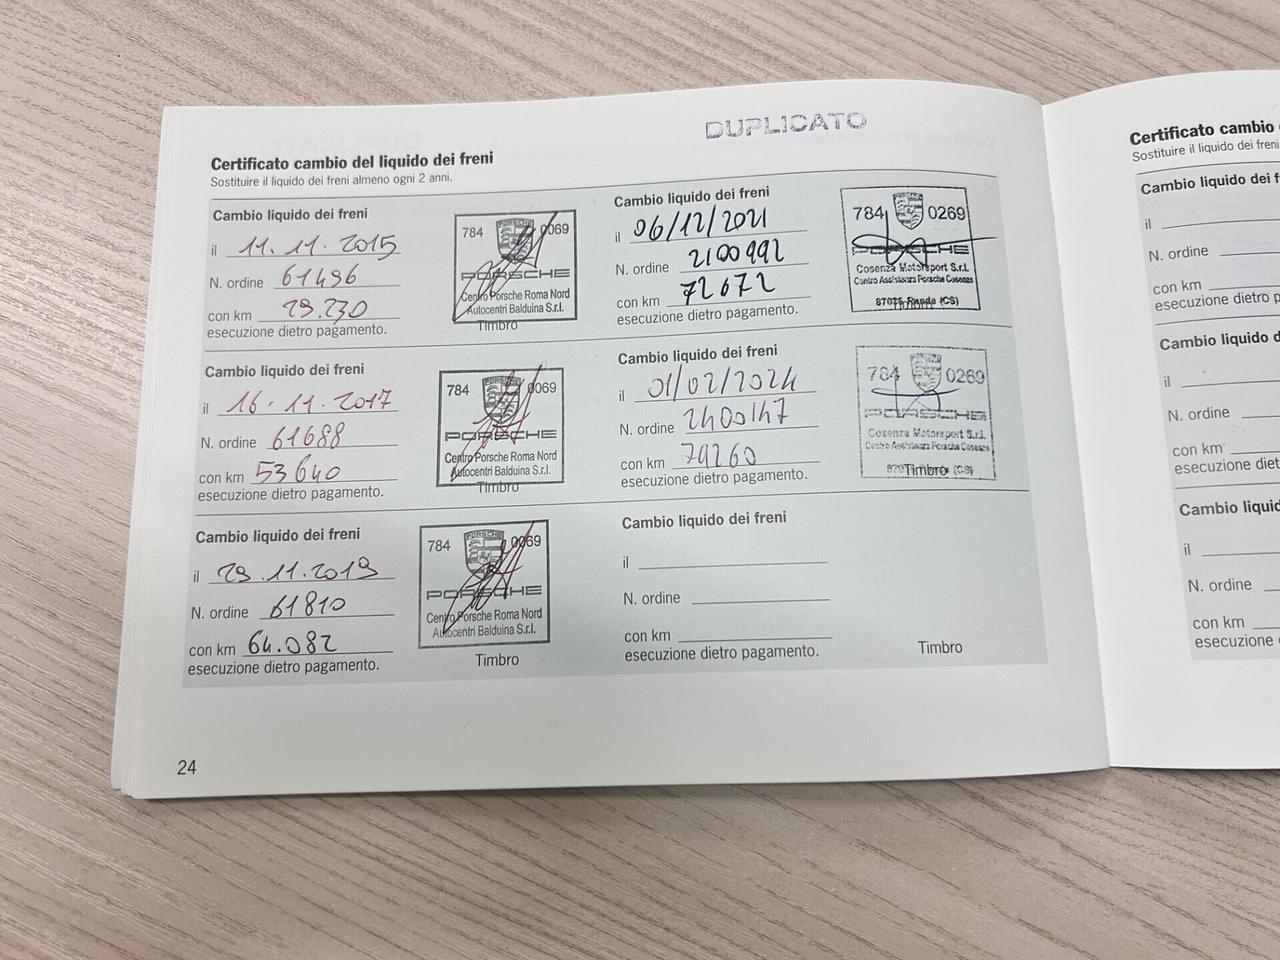 DUPLICATO
Certificato cambio del liquido dei freni
Sostituire il liquido dei freni almeno ogni 2 anni.
Cambio liquido dei freni
il 11.11.2015
N. ordine 61496
con km 29.230
esecuzione dietro pagamento.
784 0069
PORSCHE
Centro Porsche Roma Nord
Autocentri Balduina S.r.l.
Timbro
Cambio liquido dei freni
il 16.11.2017
N. ordine 61688
con km 53640
esecuzione dietro pagamento.
784 0069
PORSCHE
Centro Porsche Roma Nord
Autocentri Balduina S.r.l.
Timbro
Cambio liquido dei freni
il 29.11.2019
N. ordine 61810
con km 64.082
esecuzione dietro pagamento.
784 0069
PORSCHE
Centro Porsche Roma Nord
Autocentri Balduina S.r.l.
Timbro
Cambio liquido dei freni
il 06/12/2021
N. ordine 2100992
con km 72672
esecuzione dietro pagamento.
784 0269
PORSCHE
Cosenza Motorsport S.r.l.
Centro Assistenza Porsche Cosenza
87036 Rende (CS)
Timbro
Cambio liquido dei freni
il 01/02/2024
N. ordine 2400147
con km 79260
esecuzione dietro pagamento.
784 0269
PORSCHE
Cosenza Motorsport S.r.l.
Centro Assistenza Porsche Cosenza
Timbro (CS)
Cambio liquido dei freni
il
N. ordine
con km
esecuzione dietro pagamento.
Timbro
24
Certificato cambio
Sostituire il liquido dei freni
Cambio liquido dei f
il
N. ordine
con km
esecuzione dietro p
Cambio liquido d
il
N. ordine
con km
esecuzione diet
Cambio liquid
il
N. ordine
con km
esecuzione